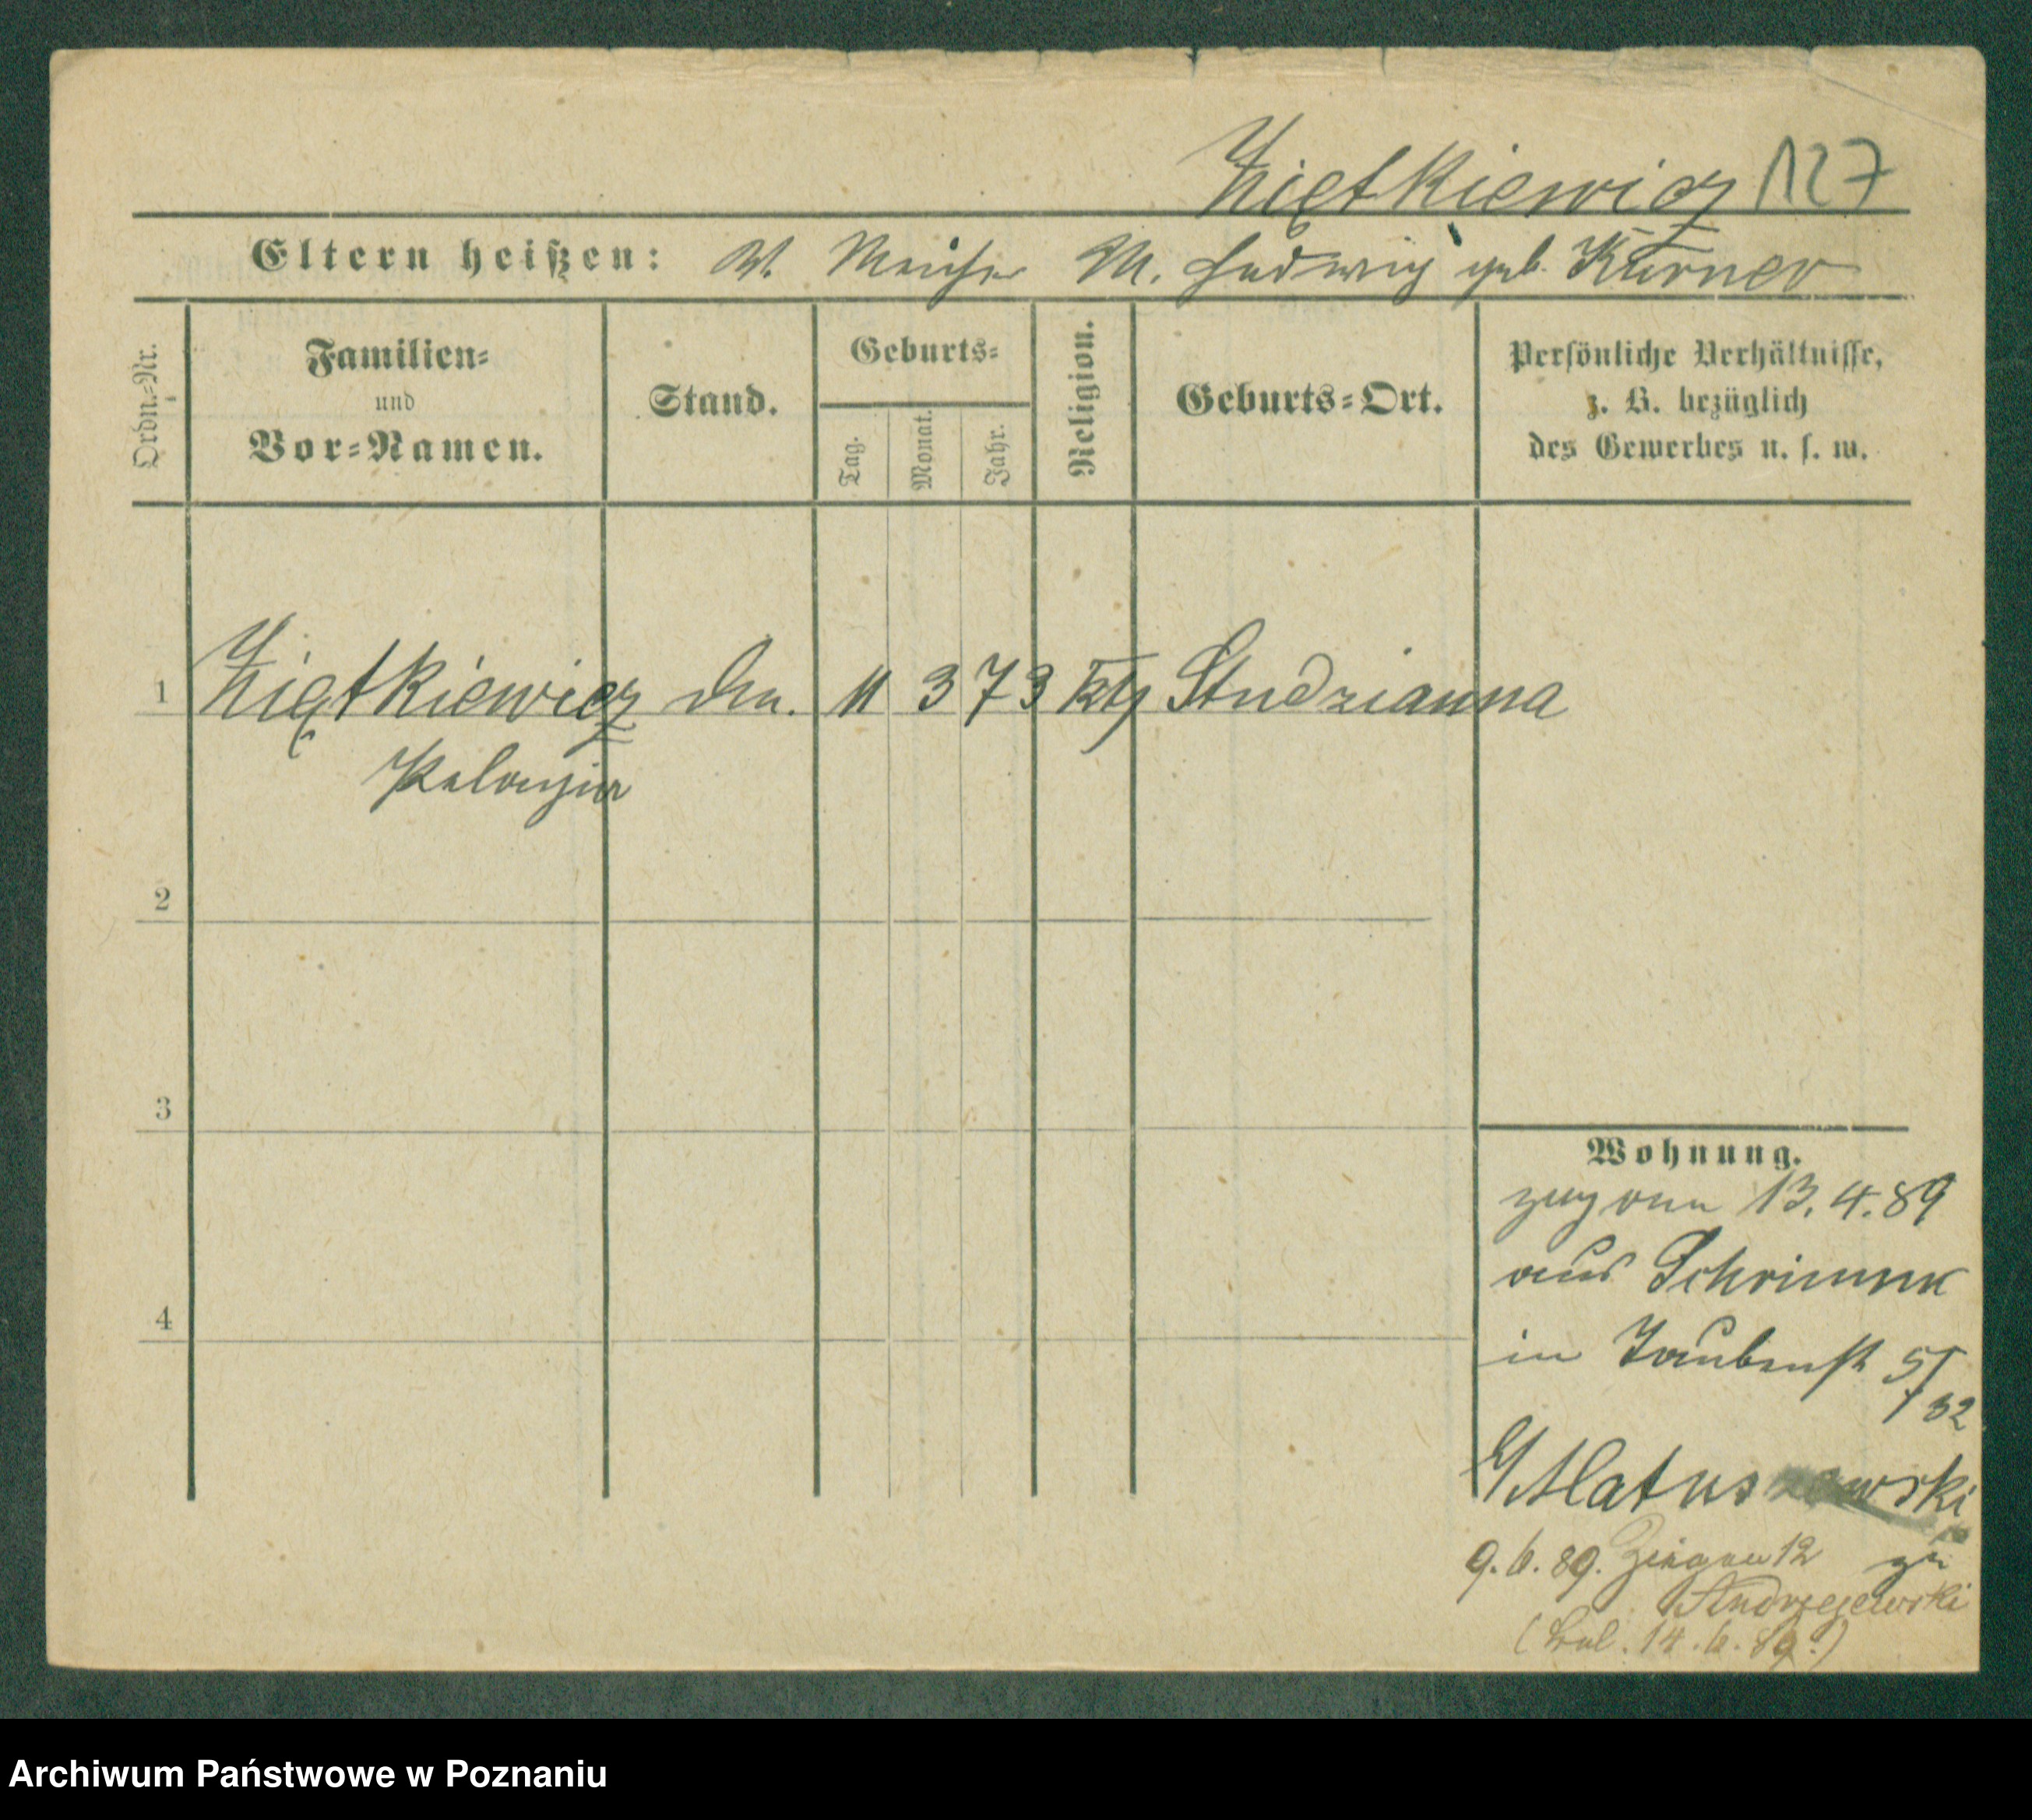 Ziętkiewicz 127
Eltern heißen: V. M. Ludwig geb. Kürner
Ordn.=Nr.
Familien=
und
Vor=Namen.
Stand.
Geburts=
Tag.
Monat.
Jahr.
Religion.
Geburts=Ort.
Persönliche Verhältnisse,
z. B. bezüglich
des Gewerbes u. s. w.
1 Ziętkiewicz 11 3 73 ktg Studzianna
Pelagia
2
3
4
Wohnung.
zugvon 13.4.89
aus Schrimm
in Taubenst 5/
32
Matuszewski
9.6.89. 12 zu
Andrzejewski
14.6.89.)
Archiwum Państwowe w Poznaniu